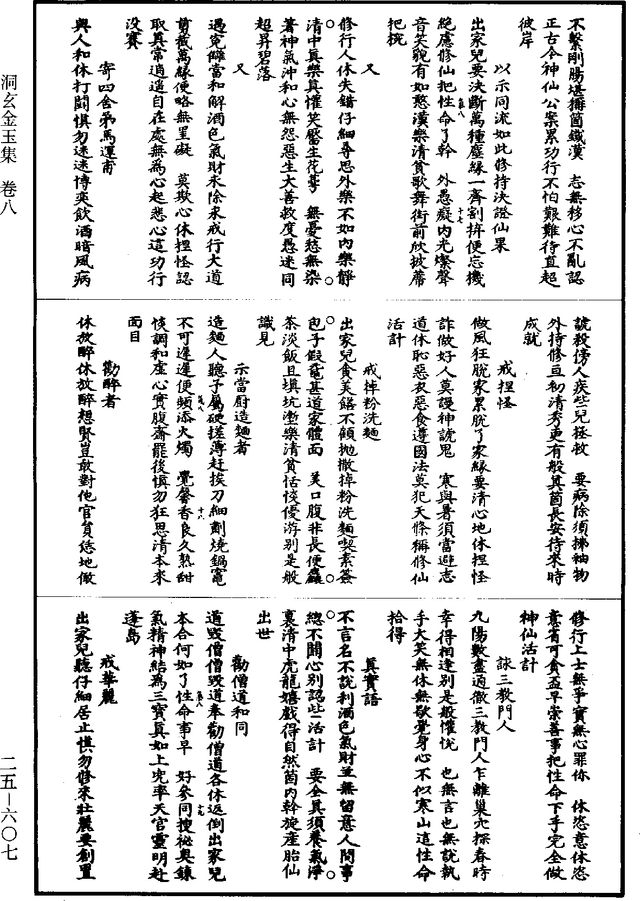 洞玄金玉集　卷八
二五—六〇七
不繫剛腸堪擣箇鐵漢　志無移心不亂認
正古今神仙公案累功行不怕艱難待直超
彼岸
以示同流如此修持決證仙果
出家兒要決斷萬種塵緣一齊割捹便忘機
絕慮修仙把性命了幹　外愚癡內光燦聲
音笑貌有如憨漢樂清貧歌舞街前欣披蓆
把椀
又
修行人休失錯仔細尋思外樂不如內樂靜
清中真樂真懽笑靨生花萼　無憂愁無染
著神氣沖和心無怨惡生大善救度愚迷同
超昇碧落
又
遇冤讎當和解酒色氣財永除永戒行大道
剪截萬緣使略無罣礙　莫欺心休捏怪認
取真常逍遙自在處無為心起悲心這功行
沒賽
寄四舍弟馬運甫
與人和休打鬭慎勿迷迷博奕飲酒暗風病
謊殺傍人疾些兒拯救　要病除須拂袖物
外持修亘初清秀更有般真箇長安待來時
成就
戒捏怪
做風狂脫家累脫了家緣要清心地休捏怪
詐做好人莫謾神諕鬼　寒與暑須當避志
道休恥惡衣惡食遵國法莫犯天條稱修仙
活計
戒掉粉洗麵
出家兒貪美饍不顧拋撒掉粉洗麵喫素簽
包子假黿甚道家體面　美口腹非長便麤
茶淡飯且填坑塹樂清貧恬惔優游別是般
識見
示當廚造麵者
造麵人聽子屬硬搓薄趕挨刀細劀燒鍋竈
不可遲遲便頻添火燭　覺馨香良久熟甜
惔調和虛心實腹齋罷後慎勿狂思清本來
面目
勸醉者
休放醉休放醉想賢豈敢對他官負恁地做
修行上士無爭寳無心罪你　休恣意休恣
意省可貪盃早崇善事把性命下手完全做
神仙活計
詠三教門人
九陽數盡通徹三教門人乍離巢穴探春時
幸得相逢別是般懽悅　也無言也無說執
手大笑無休無歇覺身心不似寒山這性命
拾得
真實語
不言名不說利酒色氣財並無留意人間事
總不關心別認些活計　要全真須養氣淨
裏清中虎龍嬉戲得自然箇內幹旋產胎仙
出世
勸僧道和同
道毀僧僧毀道奉勸僧道各休返倒出家兒
本合何如了性命事早　好參同搜祕奧鍊
氣精神結為三寳真如上兜率天宮靈明赴
蓬島
戒華麗
出家兒聽仔細居止慎勿修來壯麗要創置